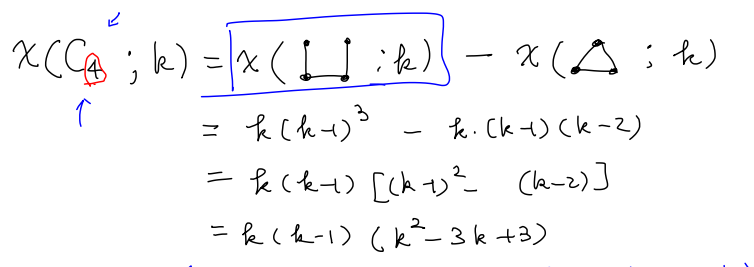 χ(C₄ ; k) = χ( ; k) − χ( ; k)
= k(k-1)³ − k.(k-1)(k-2)
= k(k-1) [(k-1)² - (k-2)]
= k(k-1) (k²-3k+3)